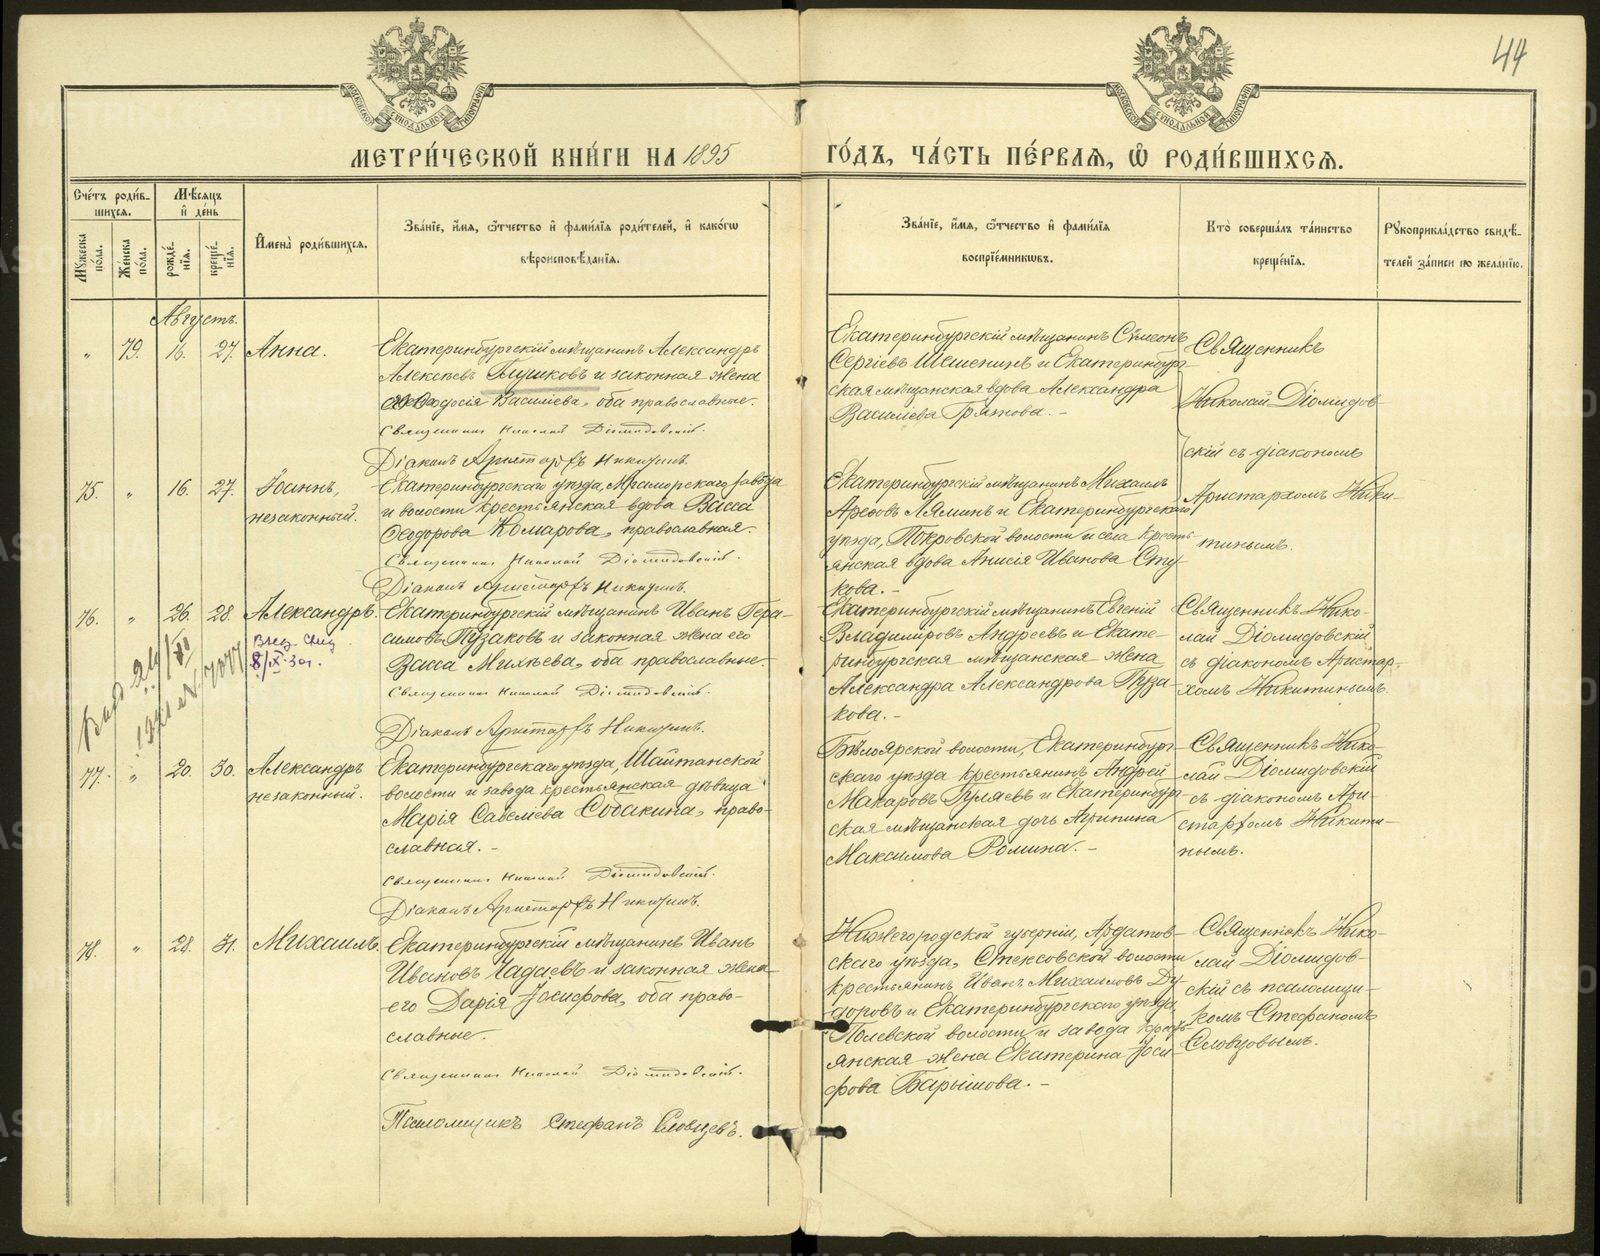 44
МОСКОВСКОЙ СѴНОДАЛЬНОЙ ТИПОГРАФІИ
МОСКОВСКОЙ СѴНОДАЛЬНОЙ ТИПОГРАФІИ
МЕТРИ́ЧЕСКОЙ КНИ́ГИ НА 1895
ГО́ДЪ, ЧА́СТЬ ПЕ́РВАѦ, Ѽ РОДИ́ВШИХСѦ.
Сче́тъ роди́в-
шихсѧ.
Мꙋжеска по́ла.
Же́нска по́ла.
Мѣ́сѧцъ
и҆ де́нь
рожде́-
нїѧ.
креще́-
нїѧ.
И҆мена̀ роди́вшихсѧ.
Зва́нїе, и҆́мѧ, ѻ҆́тчество и҆ фами́лїѧ роди́телей, и҆ како́гѡ
вѣроисповѣ́данїѧ.
Зва́нїе, и҆́мѧ, ѻ҆́тчество и҆ фами́лїѧ
воспрїе́мникѡвъ.
Кто̀ соверша́лъ та́инство
креще́нїѧ.
Рꙋкоприкла́дство свидѣ́-
телей за́писи по жела́нїю.
Августъ.
„ 79. 16. 27. Анна.
Екатеринбургскій мѣщанинъ Александръ
Алексѣевъ Глушковъ и законная жена
его Ѳеодосія Василіева, оба православные.
Священникъ Николай Діомидовскій.
Діаконъ Аристархъ Никитинъ.
Екатеринбургскій мѣщанинъ Сѵмеонъ
Сергіевъ Шешенинъ и Екатеринбург-
ская мѣщанская вдова Александра
Василіева Грязнова. –
Священникъ
Николай Діомидов-
скій съ діакономъ
Аристархомъ Ники-
тинымъ.
75. „ 16. 27. Іоаннъ,
незаконный.
Екатеринбургскаго уѣзда, Мраморскаго завода
и волости крестьянская вдова Васса
Ѳеодорова Комарова, православная.
Священникъ Николай Діомидовскій.
Діаконъ Аристархъ Никитинъ.
Екатеринбургскій мѣщанинъ Михаилъ
Ляминъ и Екатеринбургскаго
уѣзда, Покровской волости и села кресть-
янская вдова Анисія Иванова Сту-
кова. –
76. „ 26. 28. Александръ.
8/IX 30г.
Выд.
Екатеринбургскій мѣщанинъ Иванъ Гера-
симовъ Пузаковъ и законная жена его
Васса Михѣева, оба православные.
Священникъ Николай Діомидовскій.
Діаконъ Аристархъ Никитинъ.
Екатеринбургскій мѣщанинъ Евгеній
Владиміровъ Андреевъ и Екате-
ринбургская мѣщанская жена
Александра Александрова Пуза-
кова. –
Священникъ Нико-
лай Діомидовскій
съ діакономъ Аристар-
хомъ Никитинымъ.
77. „ 20. 30. Александръ
незаконный.
Екатеринбургскаго уѣзда, Шайтанской
волости и завода крестьянская дѣвица
Марія Савеліева Собакина, право-
славная. –
Священникъ Николай Діомидовскій.
Діаконъ Аристархъ Никитинъ.
Бѣлоярской волости, Екатеринбург-
скаго уѣзда крестьянинъ Андрей
Макаровъ Гуляевъ и Екатеринбург-
ская мѣщанская дочь Агрипина
Максимова Ромина. –
Священникъ Нико-
лай Діомидовскій
съ діакономъ Ари-
стархомъ Никити-
нымъ.
78. „ 28. 31. Михаилъ.
Екатеринбургскій мѣщанинъ Иванъ
Ивановъ Чадаевъ и законная жена
его Дарія Іосифова, оба право-
славные.
Священникъ Николай Діомидовскій.
Псаломщикъ Стефанъ Словцевъ.
Нижегородской губерніи, Ардатов-
скаго уѣзда, Стексовской волости
крестьянинъ Иванъ Михаиловъ Ду-
доровъ и Екатеринбургскаго уѣзда,
Полевской волости и завода кресть-
янская жена Екатерина Іоси-
фова Барышова. –
Священникъ Нико-
лай Діомидов-
скій съ псаломщи-
комъ Стефаномъ
Словцовымъ.